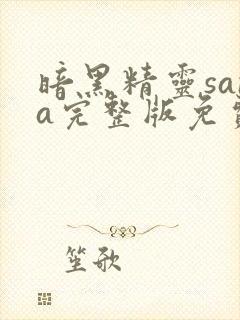 暗黑精灵sa
a完整版免
笙歌